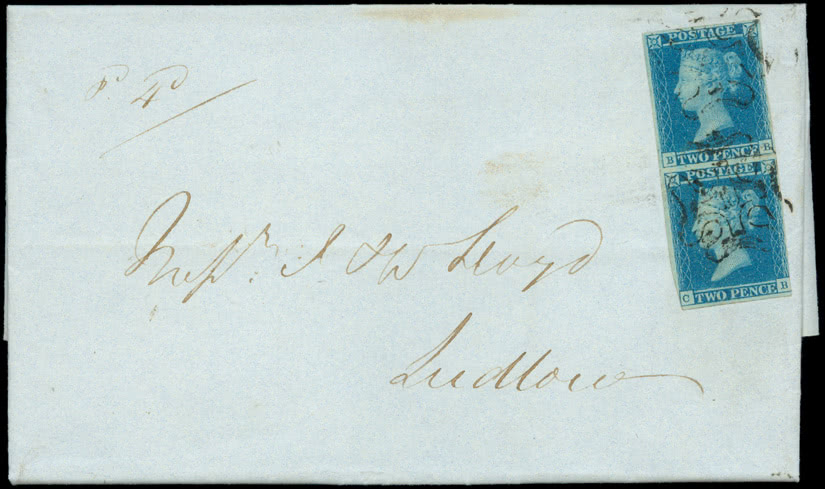 Pd 4d
POSTAGE
B TWO PENCE B
POSTAGE
C TWO PENCE B
Messrs J & W Lloyd
Ludlow